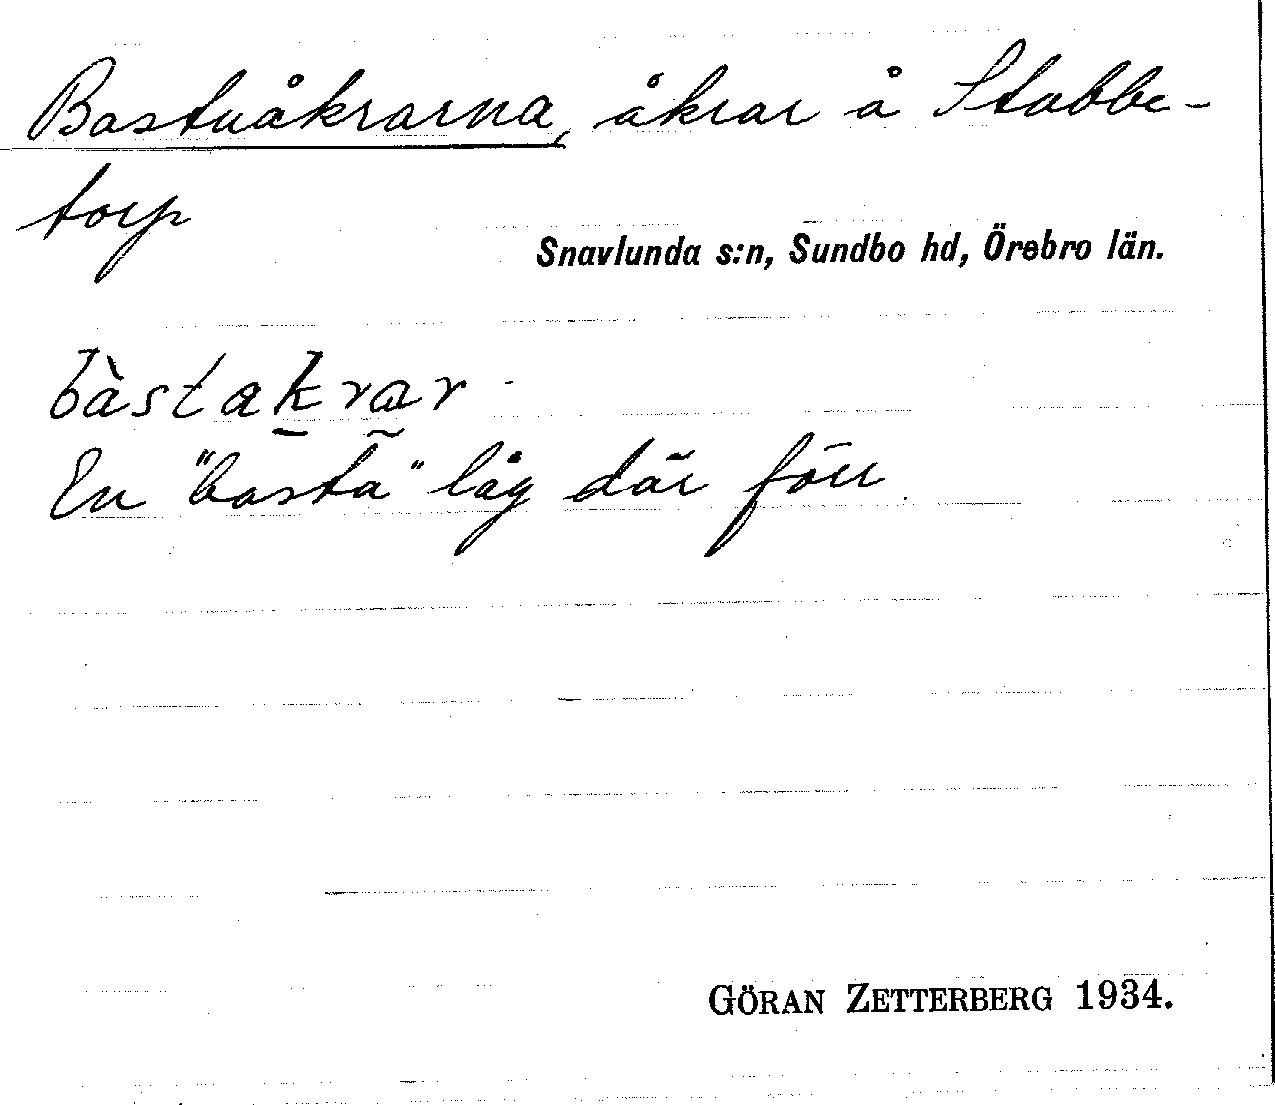 Bastuåkrarna, åkrar å Stabbe-
torp
Snavlunda s:n, Sundbo hd, Örebro län.
bàstakrar
En "basta" låg där förr.
GÖRAN ZETTERBERG 1934.